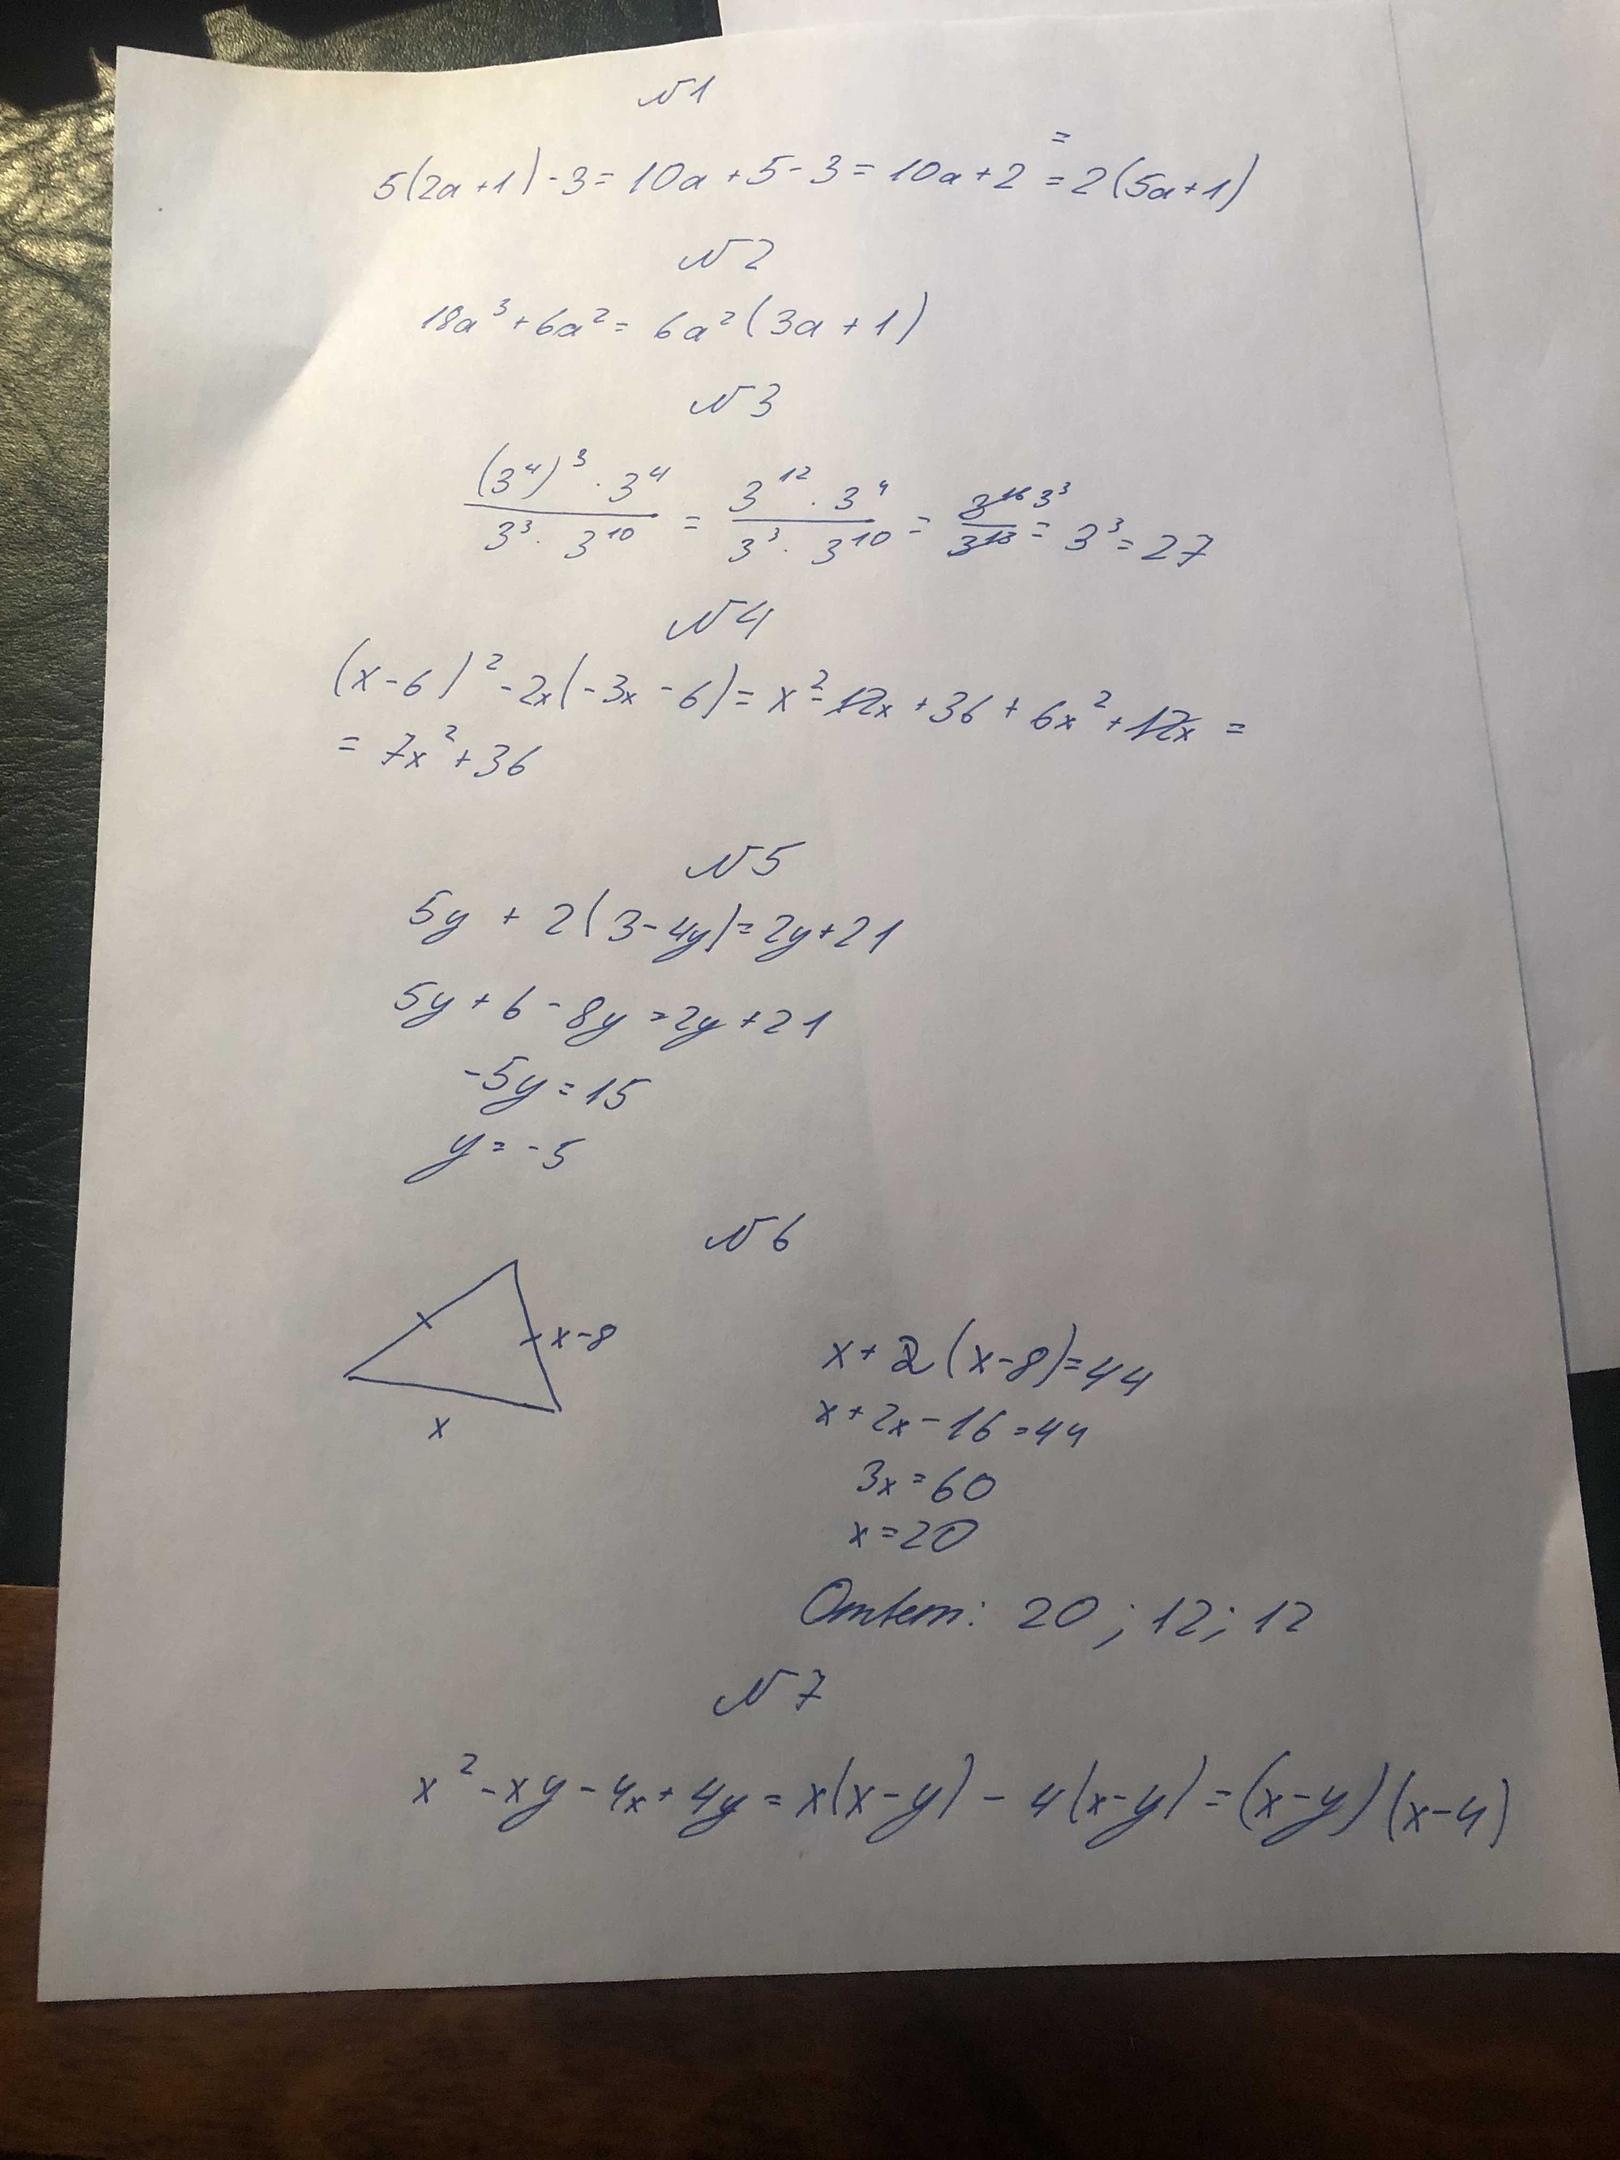 №1
5(2a+1)-3=10a+5-3=10a+2==2(5a+1)
№2
18a³+6a²=6a²(3a+1)
№3
(3⁴)³·3⁴/3³·3¹⁰=3¹²·3⁴/3³·3¹⁰=3¹⁶ 3³/3¹³=3³=27
№4
(x-6)²-2x(-3x-6)=x²-12x+36+6x²+12x=
=7x²+36
№5
5y+2(3-4y)=2y+21
5y+6-8y=2y+21
-5y=15
y=-5
№6
x-8
x
x+2(x-8)=44
x+2x-16=44
3x=60
x=20
Ответ: 20; 12; 12
№7
x²-xy-4x+4y=x(x-y)-4(x-y)=(x-y)(x-4)